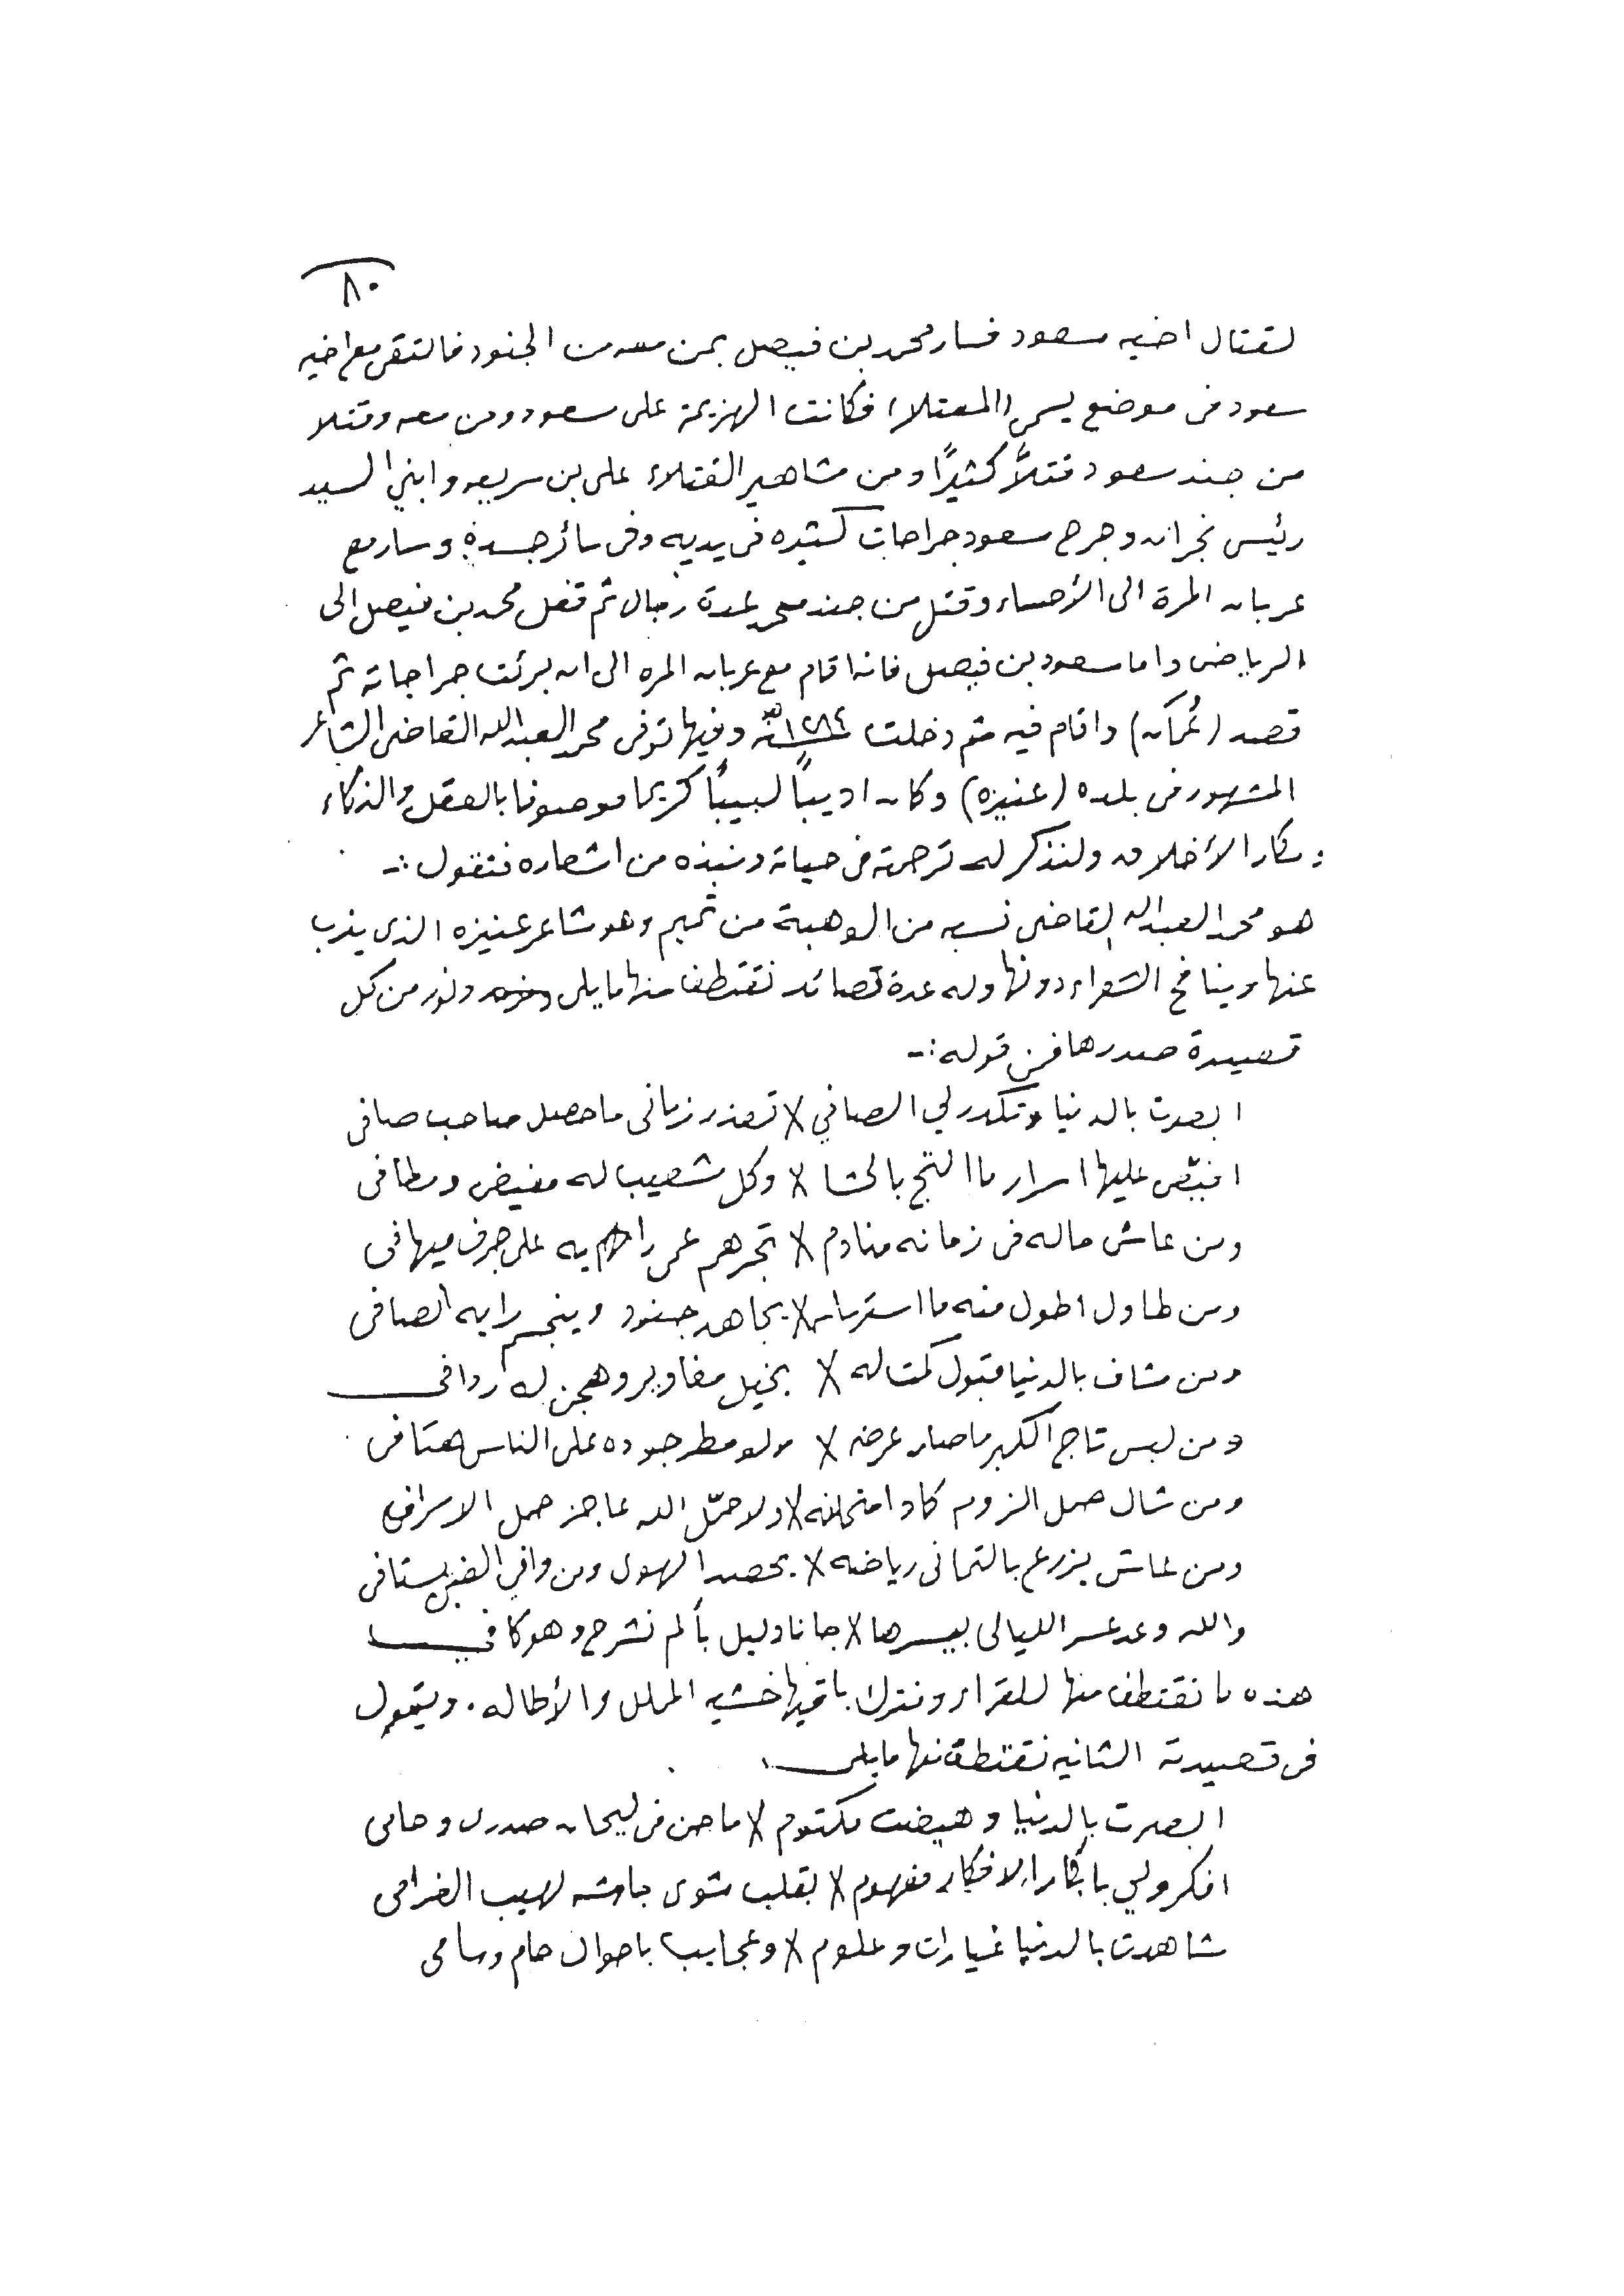 ٨٠
لقتال اخيه سعود فسار محمد بن فيصل بمن معه من الجنود فالتقى مع اخيه
سعود في موضع يسمى (المعتلا) فكانت الهزيمة على سعود ومن معه وقتلا
من جند سعود قتلاً كثيرًا ومن مشاهير القتلاء على بن سريعه وابني السيد
رئيس نجران وجرح سعود جراحات كثيره في يديه وفي سائر جسده وسار مع
عربان المرة الى الأحساء وقتل من جند محمد عدة رجال ثم قفل محمد بن فيصل الى
الرياض واما سعود بن فيصل فانه اقام مع عربان المره الى ان برئت جراحاته ثم
قصد (عُمان) واقام فيه ثم دخلت سنة ١٢٨٤هـ وفيها توفى محمد العبدالله القاضي الشاعر
المشهور في بلده (عنيزه) وكان اديباً لبيباً كريما موصوفا بالعقل والذكاء
و مكارا الأخلاق ولنذكر له ترجمة في حياته ونبذه من اشعاره فنقول :-
هو محمد العبدالله القاضي نسبه من الوهبة من تميم وهو شاعر عنيزه الذي يذب
عنها وينافح الشعراء دونها وله عدة قصائد نقتطف منها ما يلى ونورد من كل
قصيدة صدرها فمن قوله :-
ابصرت بالدنيا وتكدر لي الصافي × تعذر زماني ما حصل صاحب صافي
افيّض عليها اسرار ما التج بالحشا × وكل شعيب له مفيض ومطافى
ومن عاش ماله في زمانه منادم × تجرهم عمى رايه على جرف ميهافى
ومن طاول اطول منه ما استر باس × يجاهد جنود وينجسم رايه الصافى
ومن شاف بالدنيا قبول كمت له × بخيل مغاوير وهجن له ردافى
ومن لبس تاج الكبر ما صان عرضه × ولو مطر جوده على الناس هتافى
ومن شال حمل الزوم كاد امتحانه × ولا حمّل الله عاجز حمل الاسرافي
ومن عاش يزرع بالتمانى رياضه × يحصد الهول ومن وافي الغبن يستافى
والله وعد عسر الليالى بيسرها × جانا دليل بألم نشرح وهو كافي
هذه ما نقتطف منها للقراء ونترك باقيها خشيه الملل والأطاله. ويقول
في قصيدته الثانيه نقتطف منها ما يلى
ابصرت بالدنيا وهيضت مكتوم × ما جن في ليحان صدرى وحامى
افكر ولي بابكار الافكار مفهوم × بقلب شوى جاشه لهيب الغرامى
شاهدت بالدنيا غيارات وعلوم × وعجايب باحوال حام وسامى